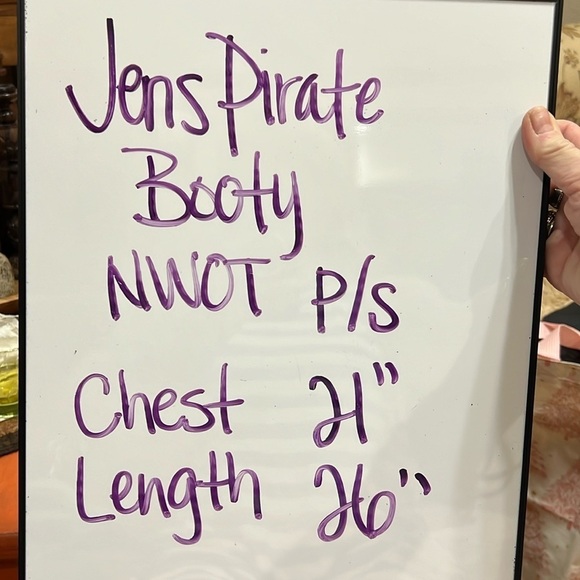 Jens Pirate
Booty
NWOT P/S
Chest 21"
Length 26"